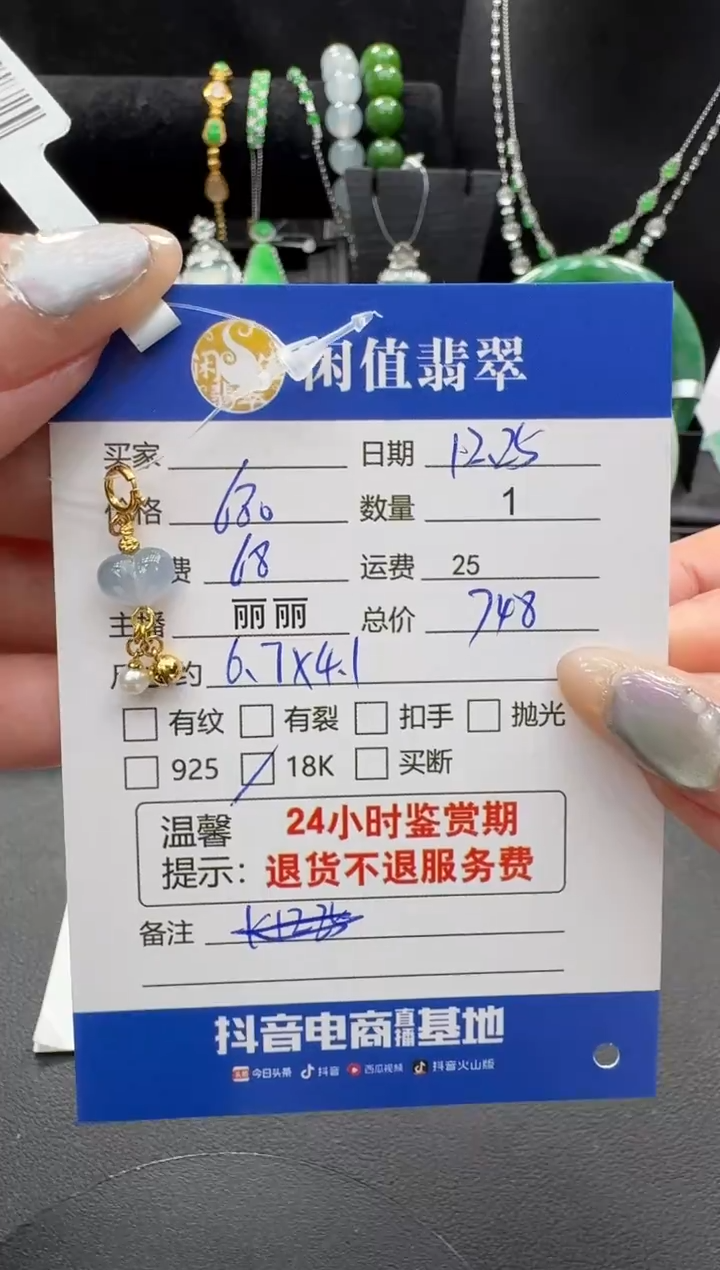 闲值翡翠
买家 日期 12.25
价格 680 数量 1
费 68 运费 25
主播 丽丽 总价 748
约 6.7X4.1
有纹 有裂 扣手 抛光
925 18K 买断
温馨 24小时鉴赏期
提示: 退货不退服务费
备注
抖音电商直播基地
今日头条 抖音 西瓜视频 抖音火山版